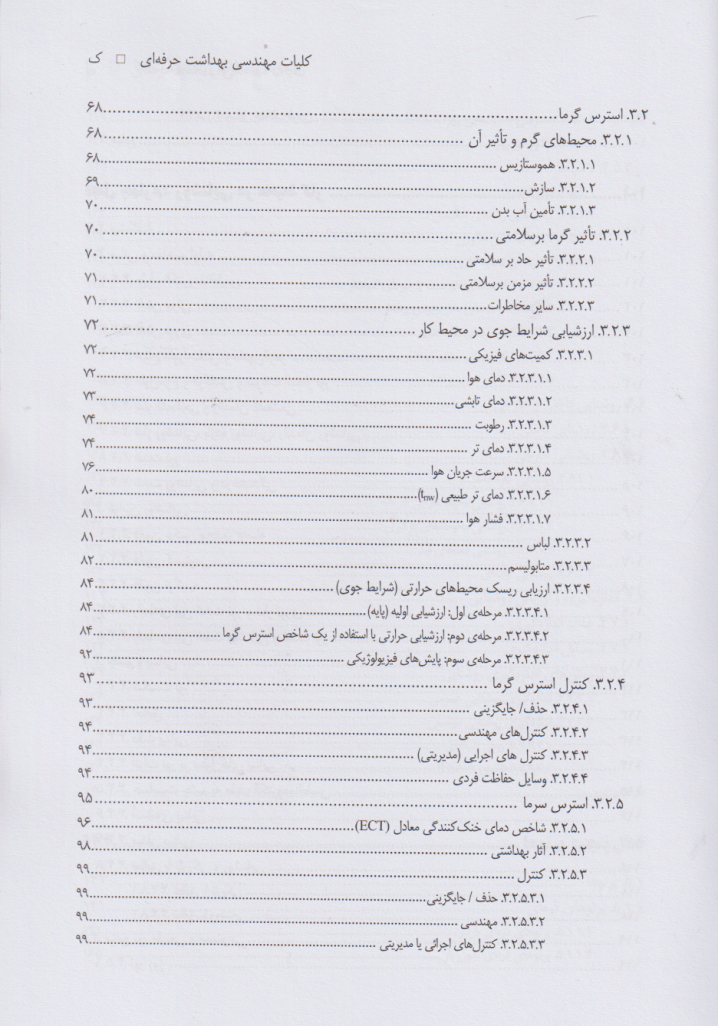 کلیات مهندسی بهداشت حرفه‌ای □ ک
۳.۲. استرس گرما ............ ۶۸
۳.۲.۱. محیط‌های گرم و تأثیر آن ............ ۶۸
۳.۲.۱.۱. هموستازیس ............ ۶۸
۳.۲.۱.۲. سازش ............ ۶۹
۳.۲.۱.۳. تأمین آب بدن ............ ۷۰
۳.۲.۲. تأثیر گرما برسلامتی ............ ۷۰
۳.۲.۲.۱. تأثیر حاد بر سلامتی ............ ۷۰
۳.۲.۲.۲. تأثیر مزمن برسلامتی ............ ۷۱
۳.۲.۲.۳. سایر مخاطرات ............ ۷۱
۳.۲.۳. ارزشیابی شرایط جوی در محیط کار ............ ۷۲
۳.۲.۳.۱. کمیت‌های فیزیکی ............ ۷۲
۳.۲.۳.۱.۱. دمای هوا ............ ۷۲
۳.۲.۳.۱.۲. دمای تابشی ............ ۷۳
۳.۲.۳.۱.۳. رطوبت ............ ۷۴
۳.۲.۳.۱.۴. دمای تر ............ ۷۴
۳.۲.۳.۱.۵. سرعت جریان هوا ............ ۷۶
۳.۲.۳.۱.۶. دمای تر طبیعی (tnw) ............ ۸۰
۳.۲.۳.۱.۷. فشار هوا ............ ۸۱
۳.۲.۳.۲. لباس ............ ۸۱
۳.۲.۳.۳. متابولیسم ............ ۸۲
۳.۲.۳.۴. ارزیابی ریسک محیط‌های حرارتی (شرایط جوی) ............ ۸۴
۳.۲.۳.۴.۱. مرحله‌ی اول: ارزشیابی اولیه (پایه) ............ ۸۴
۳.۲.۳.۴.۲. مرحله‌ی دوم: ارزشیابی حرارتی با استفاده از یک شاخص استرس گرما ............ ۸۴
۳.۲.۳.۴.۳. مرحله‌ی سوم: پایش‌های فیزیولوژیکی ............ ۹۲
۳.۲.۴. کنترل استرس گرما ............ ۹۳
۳.۲.۴.۱. حذف/ جایگزینی ............ ۹۳
۳.۲.۴.۲. کنترل‌های مهندسی ............ ۹۴
۳.۲.۴.۳. کنترل های اجرایی (مدیریتی) ............ ۹۴
۳.۲.۴.۴. وسایل حفاظت فردی ............ ۹۴
۳.۲.۵. استرس سرما ............ ۹۵
۳.۲.۵.۱. شاخص دمای خنک‌کنندگی معادل (ECT) ............ ۹۶
۳.۲.۵.۲. آثار بهداشتی ............ ۹۸
۳.۲.۵.۳. کنترل ............ ۹۹
۳.۲.۵.۳.۱. حذف / جایگزینی ............ ۹۹
۳.۲.۵.۳.۲. مهندسی ............ ۹۹
۳.۲.۵.۳.۳. کنترل‌های اجرائی یا مدیریتی ............ ۹۹